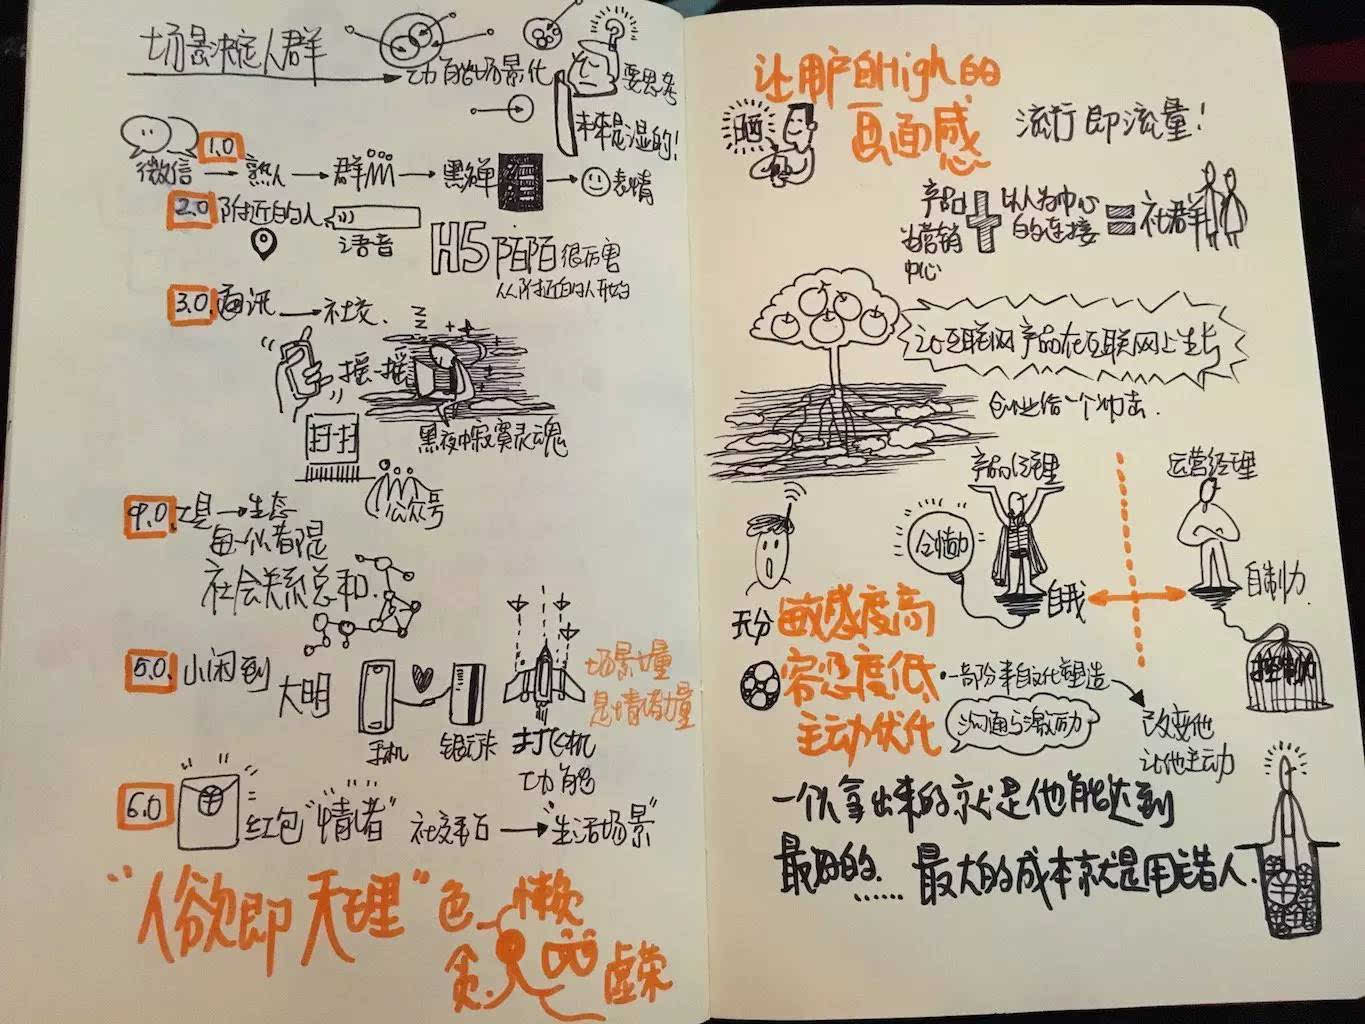 场景决定人群
功能场景化
要思考
未来是湿的!
微信 1.0 熟人 群 黑单 表情
2.0 附近的人
语音
H5 陌陌很厉害
从附近的人开始
3.0 通讯 社交
z z
摇一摇
扫一扫
黑夜中寂寞灵魂
公众号
4.0 工具 生态
每一个都是
社会关系总和
5.0 小闲到
大明
手机 银行卡 打飞机
功能
场景力量
是情绪力量
6.0 红包"情绪" 社交 "生活场景"
"人欲即天理" 色 懒
贪 虚荣
让用户自High的
画面感
晒
流行即流量!
产品
为营销
中心
以人为中心
的连接
社群
让互联网产品在互联网上生长
创业给一个冲击.
产品经理
运营经理
自我
自制力
控制力
天分
敏感度高
容忍度低
主动优化
一部分来自文化塑造
沟通与激励力
改变他
让他主动
一个人拿出来的就是他能达到
最好的...... 最大的成本就是用错人.